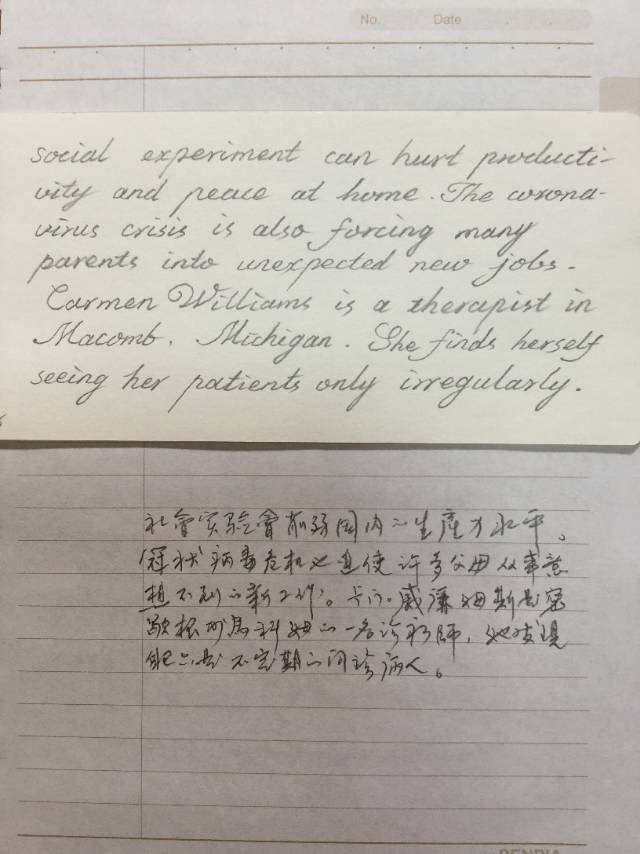 No. Date
social experiment can hurt producti-
vity and peace at home. The corona-
virus crisis is also forcing many
parents into unexpected new jobs.
Carmen Williams is a therapist in
Macomb, Michigan. She finds herself
seeing her patients only irregularly.
社會实验會削弱国内の生産力水平。
冠状病毒危机也迫使许多父母从事意
想不到の新工作。卡门·威廉姆斯是密
歇根州馬科姆の一名诊疗師,她发現
自己只是不定期の问诊病人。